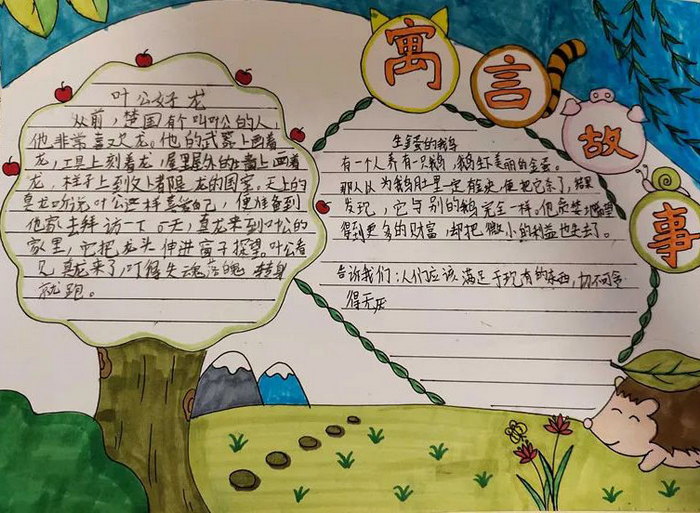 寓言故事
叶公好龙
从前，楚国有个叫叶公的人，
他非常喜欢龙。他的武器上画着
龙，工具上刻着龙，屋里屋外的墙上画着
龙，柱子上到处都是龙的图案。天上的
真龙听说叶公这样喜欢自己，便准备到
他家去拜访一下。一天，真龙来到叶公的
家里，它把龙头伸进窗子探望。叶公看
见真龙来了，吓得失魂落魄，转身
就跑。
生金蛋的鹅
有一个人养有一只鹅，鹅生美丽的金蛋。
那人以为鹅肚里一定有金块，便把它杀了，结果
发现，它与别的鹅完全一样。他贪婪地希望
得到更多的财富，却把微小的利益也失去了。
告诉我们：人们应该满足于现有的东西，切不可贪
得无厌